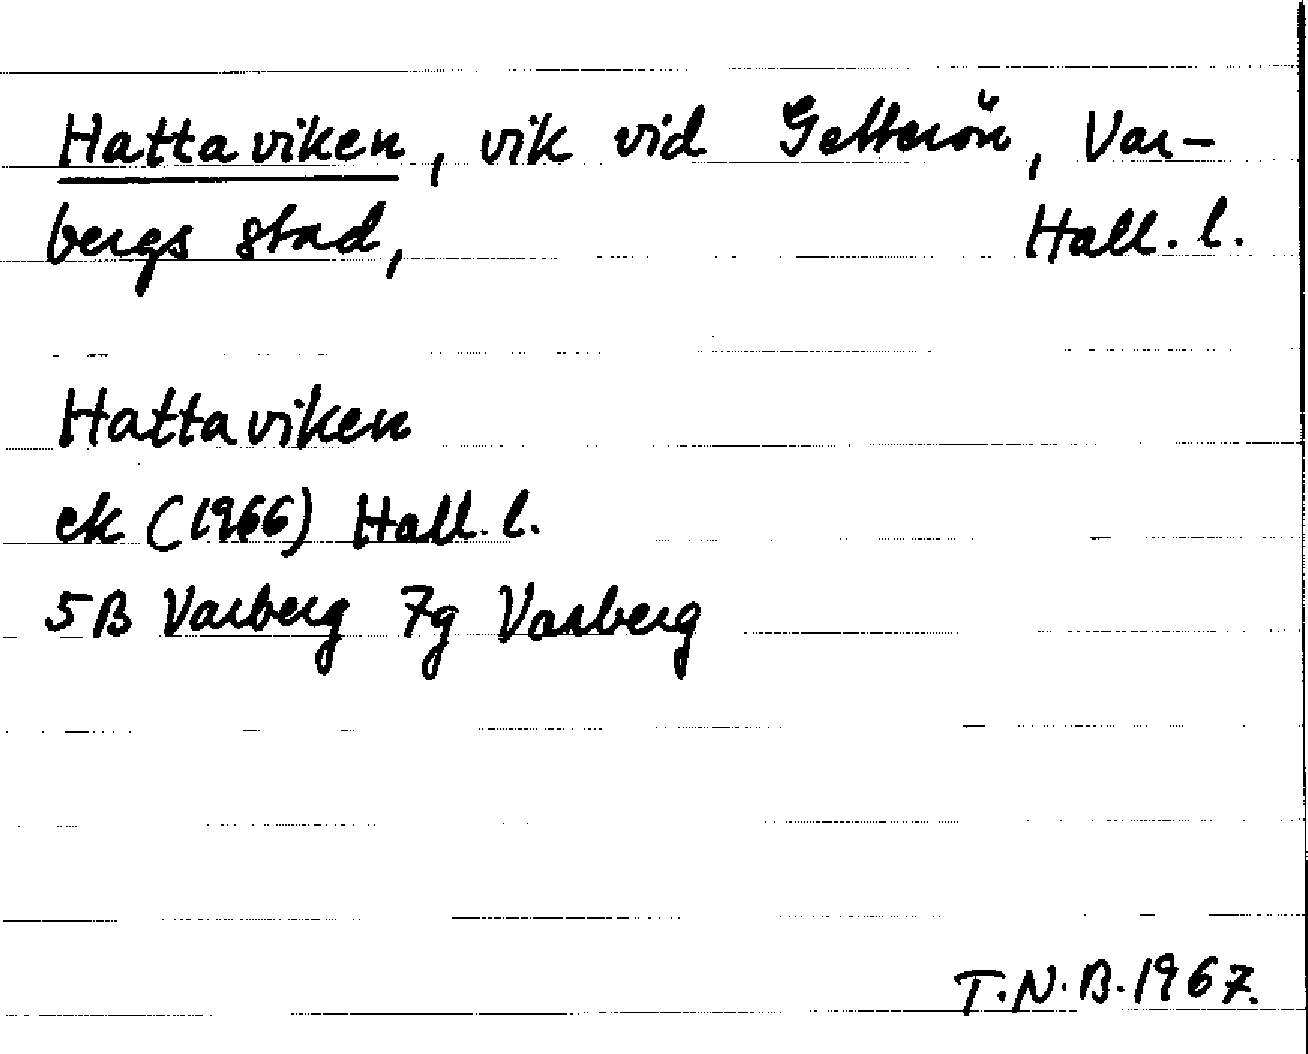 Hattaviken, vik vid Getterön, Var-
bergs stad, Hall. l.
Hattaviken
ek (1966) Hall. l.
5B Varberg 7g Varberg
T.N.B. 1967.